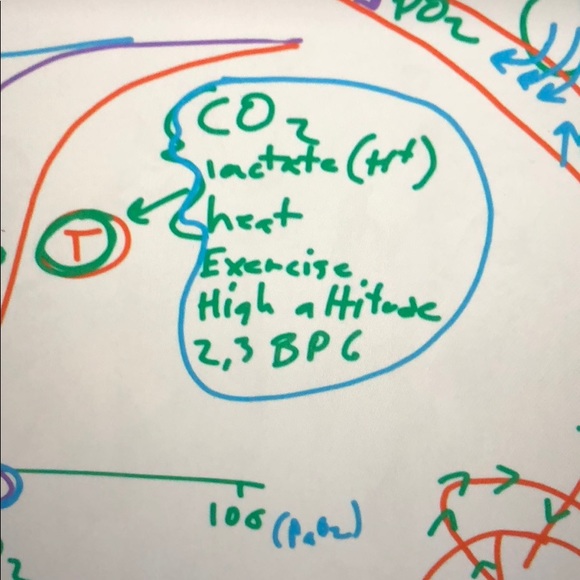 PO2
CO2
lactate (H+)
heat
Exercise
High altitude
2,3 BPG
T
100
(PaO2)
2